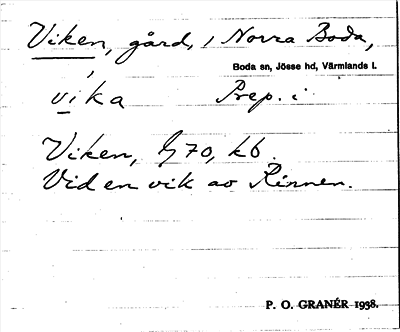 Viken, gård, i Norra Boda,
Boda sn, Jösse hd, Värmlands l.
vika Prep. i
Viken, G 70, k6.
Vid en vik av Rinnen.
P. O. GRANÉR 1938.